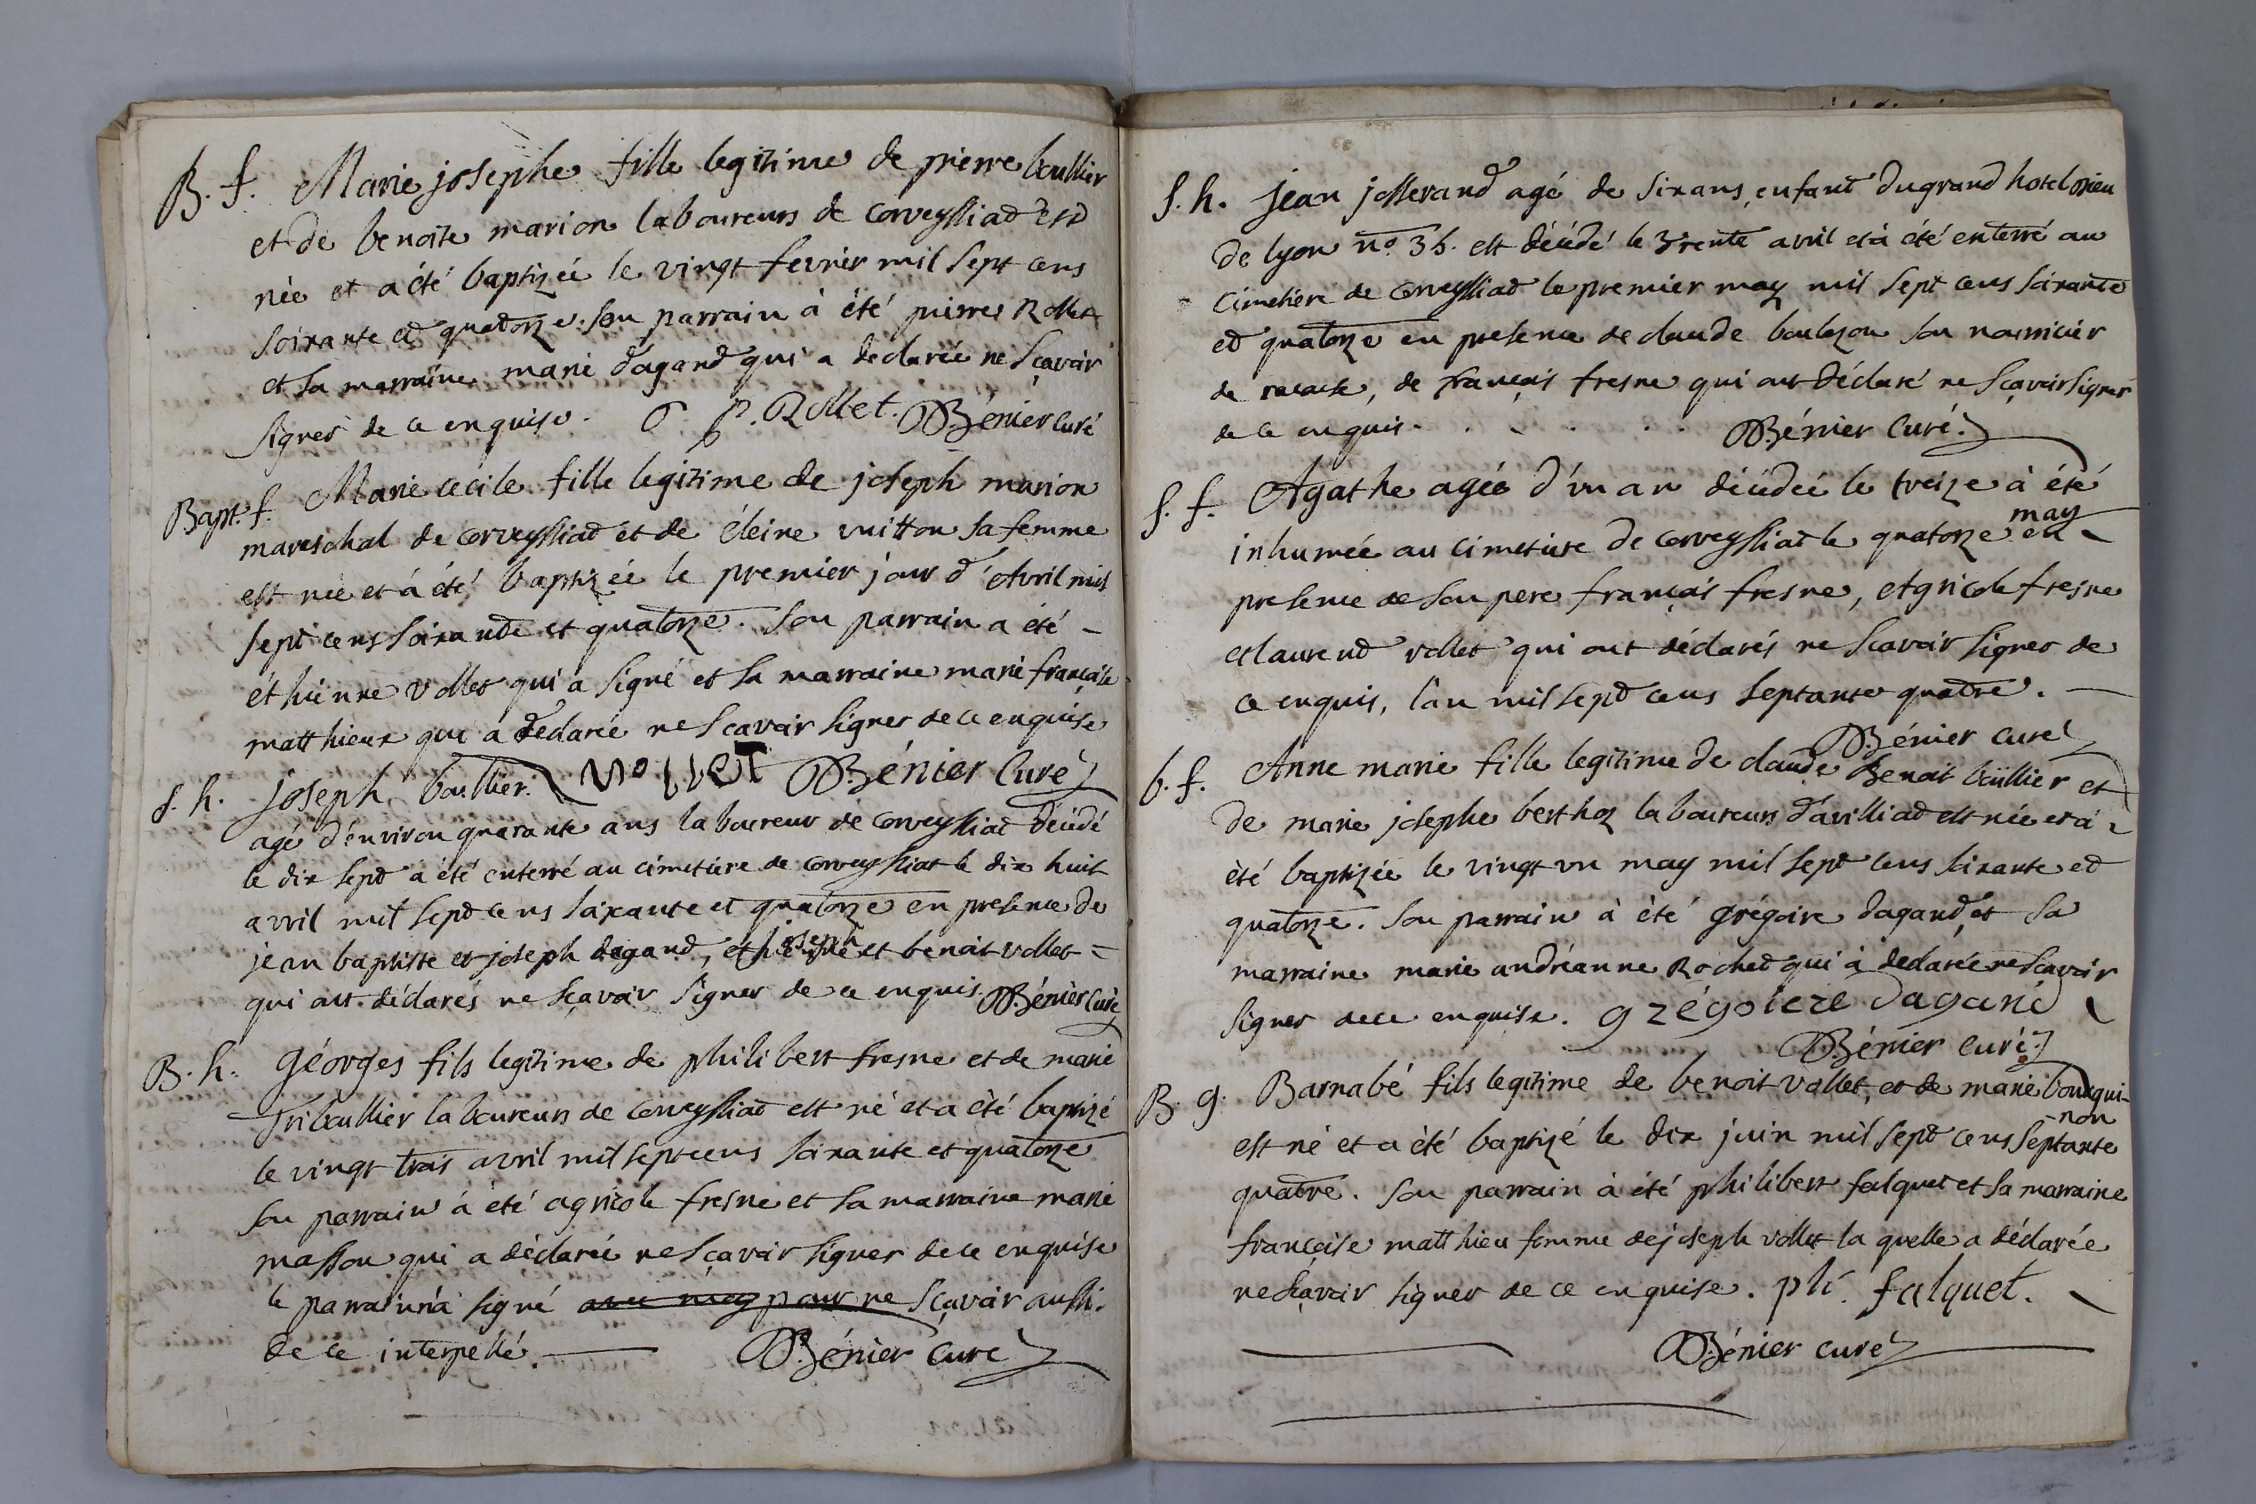 B. f. Marie josephe fille legitime de pierre boullier
et de benoite marion laboureurs de corveyssiat est
née et a été baptizée le vingt fevrier mil sept cens
soixante et quatorze. son parrain à été pierre Rollet
et sa marraine marie dagand qui a declarée ne sçavoir
signer de ce enquise. P. Rollet. Bénier curé
Bapt. f. Marie cecile fille legitime de joseph marion
mareschal de corveyssiat et de éleine vuitton sa femme
est née et à été baptizée le premier jour d'Avril mil
sept cens soixante et quatorze. Son parrain a été -
éthienne vollet qui a signé et sa marraine marie françoise
matthieux qui a declarée ne sçavoir signer de ce enquise
vollet Bénier Curé
s. h. joseph boullier
agé d'environ quarante ans laboureur de corveyssiat décédé
le dix sept a été enterré au cimetiere de corveyssiat le dix huit
avril mil sept cens soixante et quatorze en presence de
jean baptiste et joseph dagand, joseph et benoit vollet =
qui ont déclarés ne sçavoir signer de ce enquis Bénier Curé
B. h. géorges fils legitime de philibert fresne et de marie
Triboullier laboureurs de corveyssiat est né et a été baptizé
le vingt trois avril mil sept cens soixante et quatorze
son parrain à été agricole fresne et sa marraine marie
masson qui a déclarée ne sçavoir signer de ce enquise
le parrain n'a signé avec moy pour ne sçavoir aussi.
de ce interpellé. Bénier curé
s. h. jean josserand agé de six ans, enfant du grand hotel Dieu
de lyon no. 35. est décédé le trente avril et à été enterré au
cimetiere de corveyssiat le premier may mil sept cens soixante
et quatorze en presence de claude boulezon son nourricier
de, de françois fresne qui ont déclaré ne sçavoir signer
de ce enquis. Bénier Curé.
s. f. Agathe agée d'un an décédée le treize à été
inhumée au cimetiere de corveyssiat le quatorze may en
presence de son pere françois fresne, Agricole fresne
et laurend vollet qui ont déclarés ne scavoir signer de
ce enquis, l'an mil sept cens septante quatre. -
Bénier curé
b. f. Anne marie fille legitime de claude Benoit boullier et
de marie josephe berthoz laboureurs d'avilliad est née et à
été baptizée le vingt un may mil sept cens soixante et
quatorze. son parrain à été grégoire dagand, et sa
marraine marie andréanne Rochet qui à declarée ne scavoir
signer de ce enquise. grégoiere dagand
Bénier curé.
B. g. Barnabé fils legitime de benoit vollet, et de marie bourgui-
-non
est né et a été baptizé le dix juin mil sept cens septante
quatre. son parrain à été philibert falquet et sa marraine
françoise matthieu femme de joseph vollet la quelle a déclarée
ne sçavoir signer de ce enquise. ph. falquet.
Bénier curé